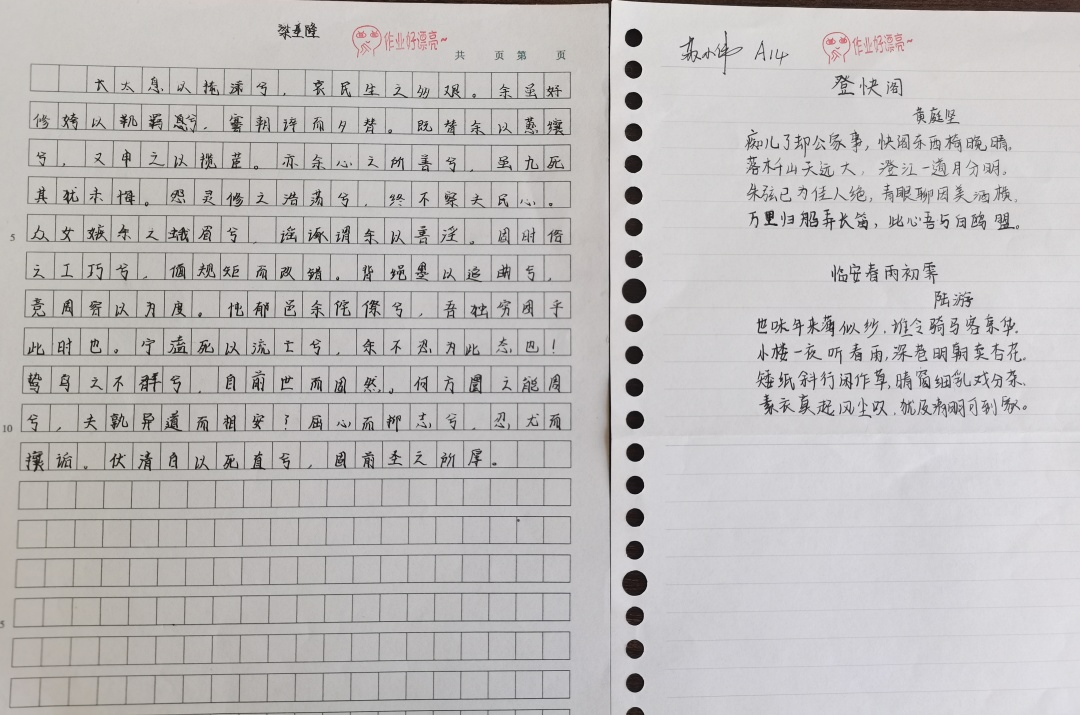 梁亚隆
作业好漂亮~
共 页 第 页
长太息以掩涕兮,哀民生之多艰。余虽好
修姱以鞿羁兮,謇朝谇而夕替。既替余以蕙纕
兮,又申之以揽茝。亦余心之所善兮,虽九死
其犹未悔。怨灵修之浩荡兮,终不察夫民心。
5
众女嫉余之蛾眉兮,谣诼谓余以善淫。固时俗
之工巧兮,偭规矩而改错。背绳墨以追曲兮,
竞周容以为度。忳郁邑余侘傺兮,吾独穷困乎
此时也。宁溘死以流亡兮,余不忍为此态也!
鸷鸟之不群兮,自前世而固然。何方圜之能周
10
兮,夫孰异道而相安?屈心而抑志兮,忍尤而
攘诟。伏清白以死直兮,固前圣之所厚。
5
苏小伟 A14
作业好漂亮~
登快阁
黄庭坚
痴儿了却公家事,快阁东西倚晚晴。
落木千山天远大,澄江一道月分明。
朱弦已为佳人绝,青眼聊因美酒横。
万里归船弄长笛,此心吾与白鸥盟。
临安春雨初霁
陆游
世味年来薄似纱,谁令骑马客京华.
小楼一夜听春雨,深巷明朝卖杏花.
矮纸斜行闲作草,晴窗细乳戏分茶.
素衣莫起风尘叹,犹及清明可到家。